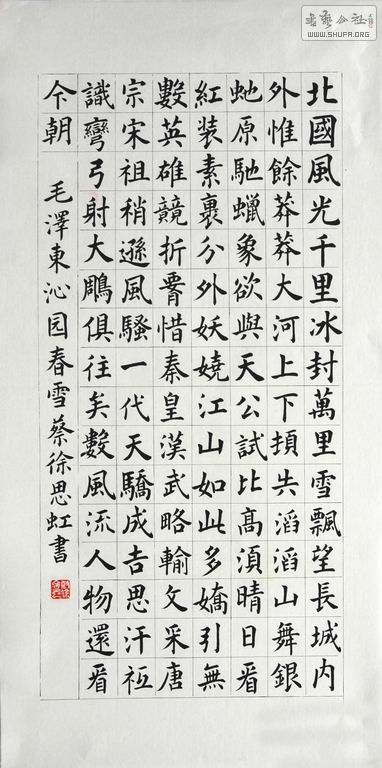 北國風光千里冰封萬里雪飄望長城内
外惟餘莽莽大河上下頓失滔滔山舞銀
虵原馳蠟象欲與天公試比高湏晴日看
紅装素裹分外妖嬈江山如此多嬌引無
數英雄競折腰惜秦皇漢武略輸文采唐
宗宋祖稍遜風騷一代天驕成吉思汗衹
識彎弓射大鵰俱往矣數風流人物還看
今朝 毛澤東沁园春雪蔡徐思虹書
WWW.SHUFA.ORG